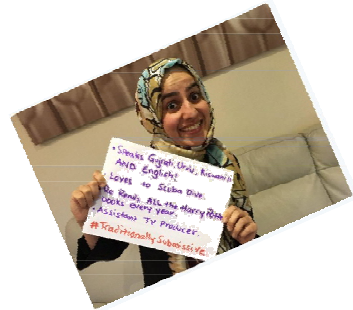 • Speaks Gujrati, Urdu, Kiswahili
AND English!
• LOVES to Scuba Dive.
• Re Reads ALL the Harry Potter
books every year.
• Assistant TV Producer.
#TraditionallySubmissive